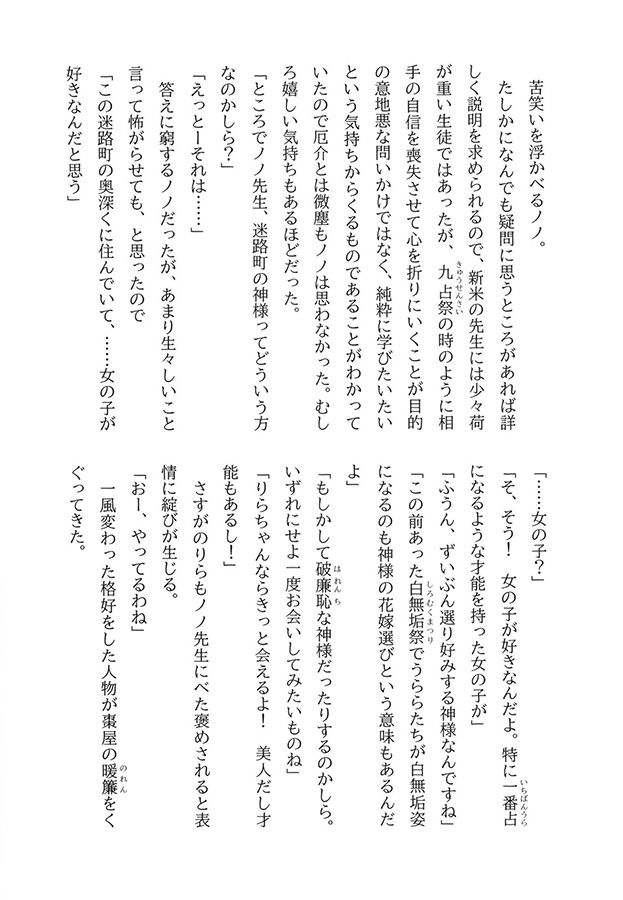 苦笑いを浮かべるノノ。
　たしかになんでも疑問に思うところがあれば詳
しく説明を求められるので、新米の先生には少々荷
が重い生徒ではあったが、九占祭の時のように相
きゅうせんさい
手の自信を喪失させて心を折りにいくことが目的
の意地悪な問いかけではなく、純粋に学びたいたい
という気持ちからくるものであることがわかって
いたので厄介とは微塵もノノは思わなかった。むし
ろ嬉しい気持ちもあるほどだった。
「ところでノノ先生、迷路町の神様ってどういう方
なのかしら？」
「えっとーそれは……」
　答えに窮するノノだったが、あまり生々しいこと
言って怖がらせても、と思ったので
「この迷路町の奥深くに住んでいて、……女の子が
好きなんだと思う」
「……女の子？」
「そ、そう！　女の子が好きなんだよ。特に一番占
いちばんうら
になるような才能を持った女の子が」
「ふうん、ずいぶん選り好みする神様なんですね」
「この前あった白無垢祭でうららたちが白無垢姿
しろむくまつり
になるのも神様の花嫁選びという意味もあるんだ
よ」
「もしかして破廉恥な神様だったりするのかしら。
はれんち
いずれにせよ一度お会いしてみたいものね」
「りらちゃんならきっと会えるよ！　美人だし才
能もあるし！」
　さすがのりらもノノ先生にべた褒めされると表
情に綻びが生じる。
「おー、やってるわね」
　一風変わった格好をした人物が棗屋の暖簾をく
のれん
ぐってきた。